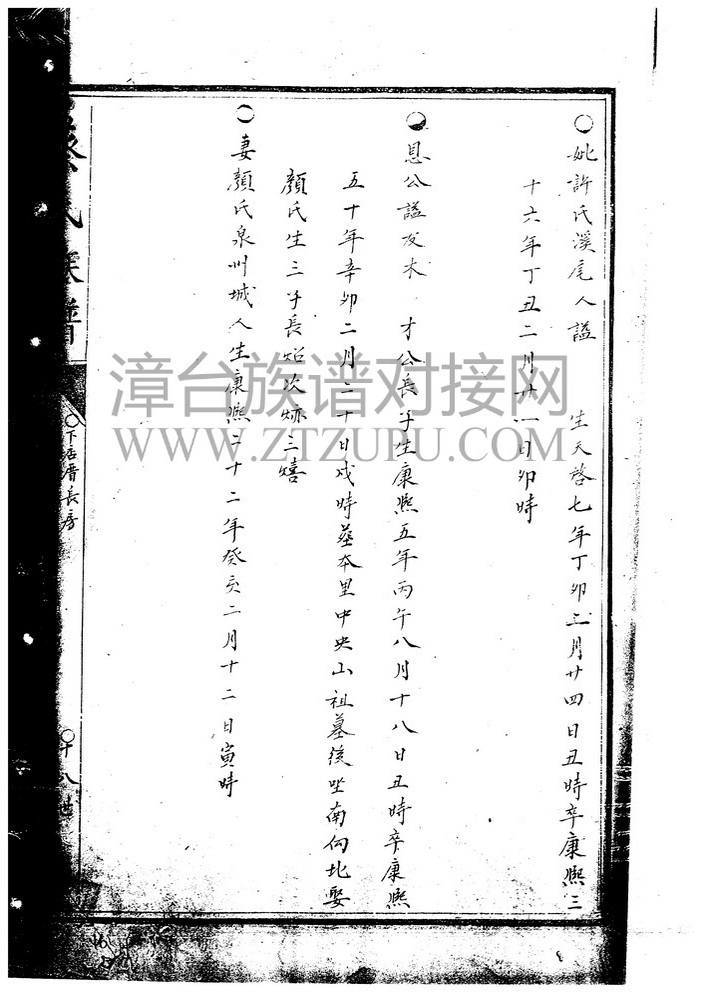 ○妣許氏溪尾人諡 生天啓七年丁卯三月廿四日丑時卒康熙三
十六年丁丑二月廿一日卯時
恩公諡友木 才公長子生康熙五年丙午八月十八日丑時卒康熙
五十年辛卯二月二十日戌時葬本里中央山祖墓後坐南向北娶
顏氏生三子長 次 三嬉
妻顏氏泉州城人生康熙二十二年癸亥二月十二日寅時
氏族譜
○下店厝長房
○十八世
漳台族谱对接网
WWW.ZTZUPU.COM